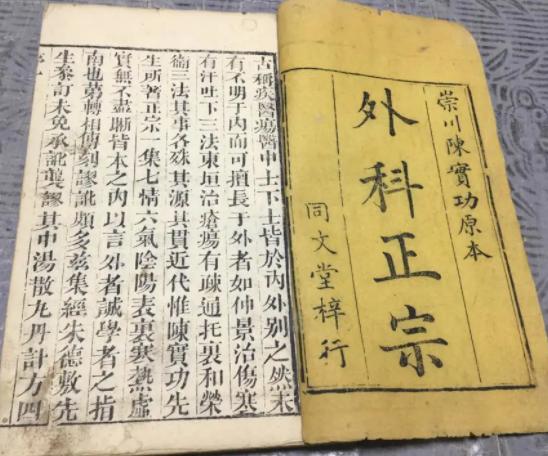 崇川陳實功原本
外科正宗
同文堂梓行
古稱疾醫瘍醫中士下士皆於內外別之然未
有不明于內而可擅長于外者如仲景治傷寒
有汗吐下三法東垣治瘡瘍有疎通托裏和榮
衞三法其事各殊其源其貫近代惟陳實功先
生所著正宗一集七情六氣陰陽表裏寒熱虛
實無不盡晰皆本之內以言外者誠學者之指
南也第轉相傳刻謬訛頗多兹集經朱德敷先
生叅訂未免承訛襲謬其中湯散九丹計方四